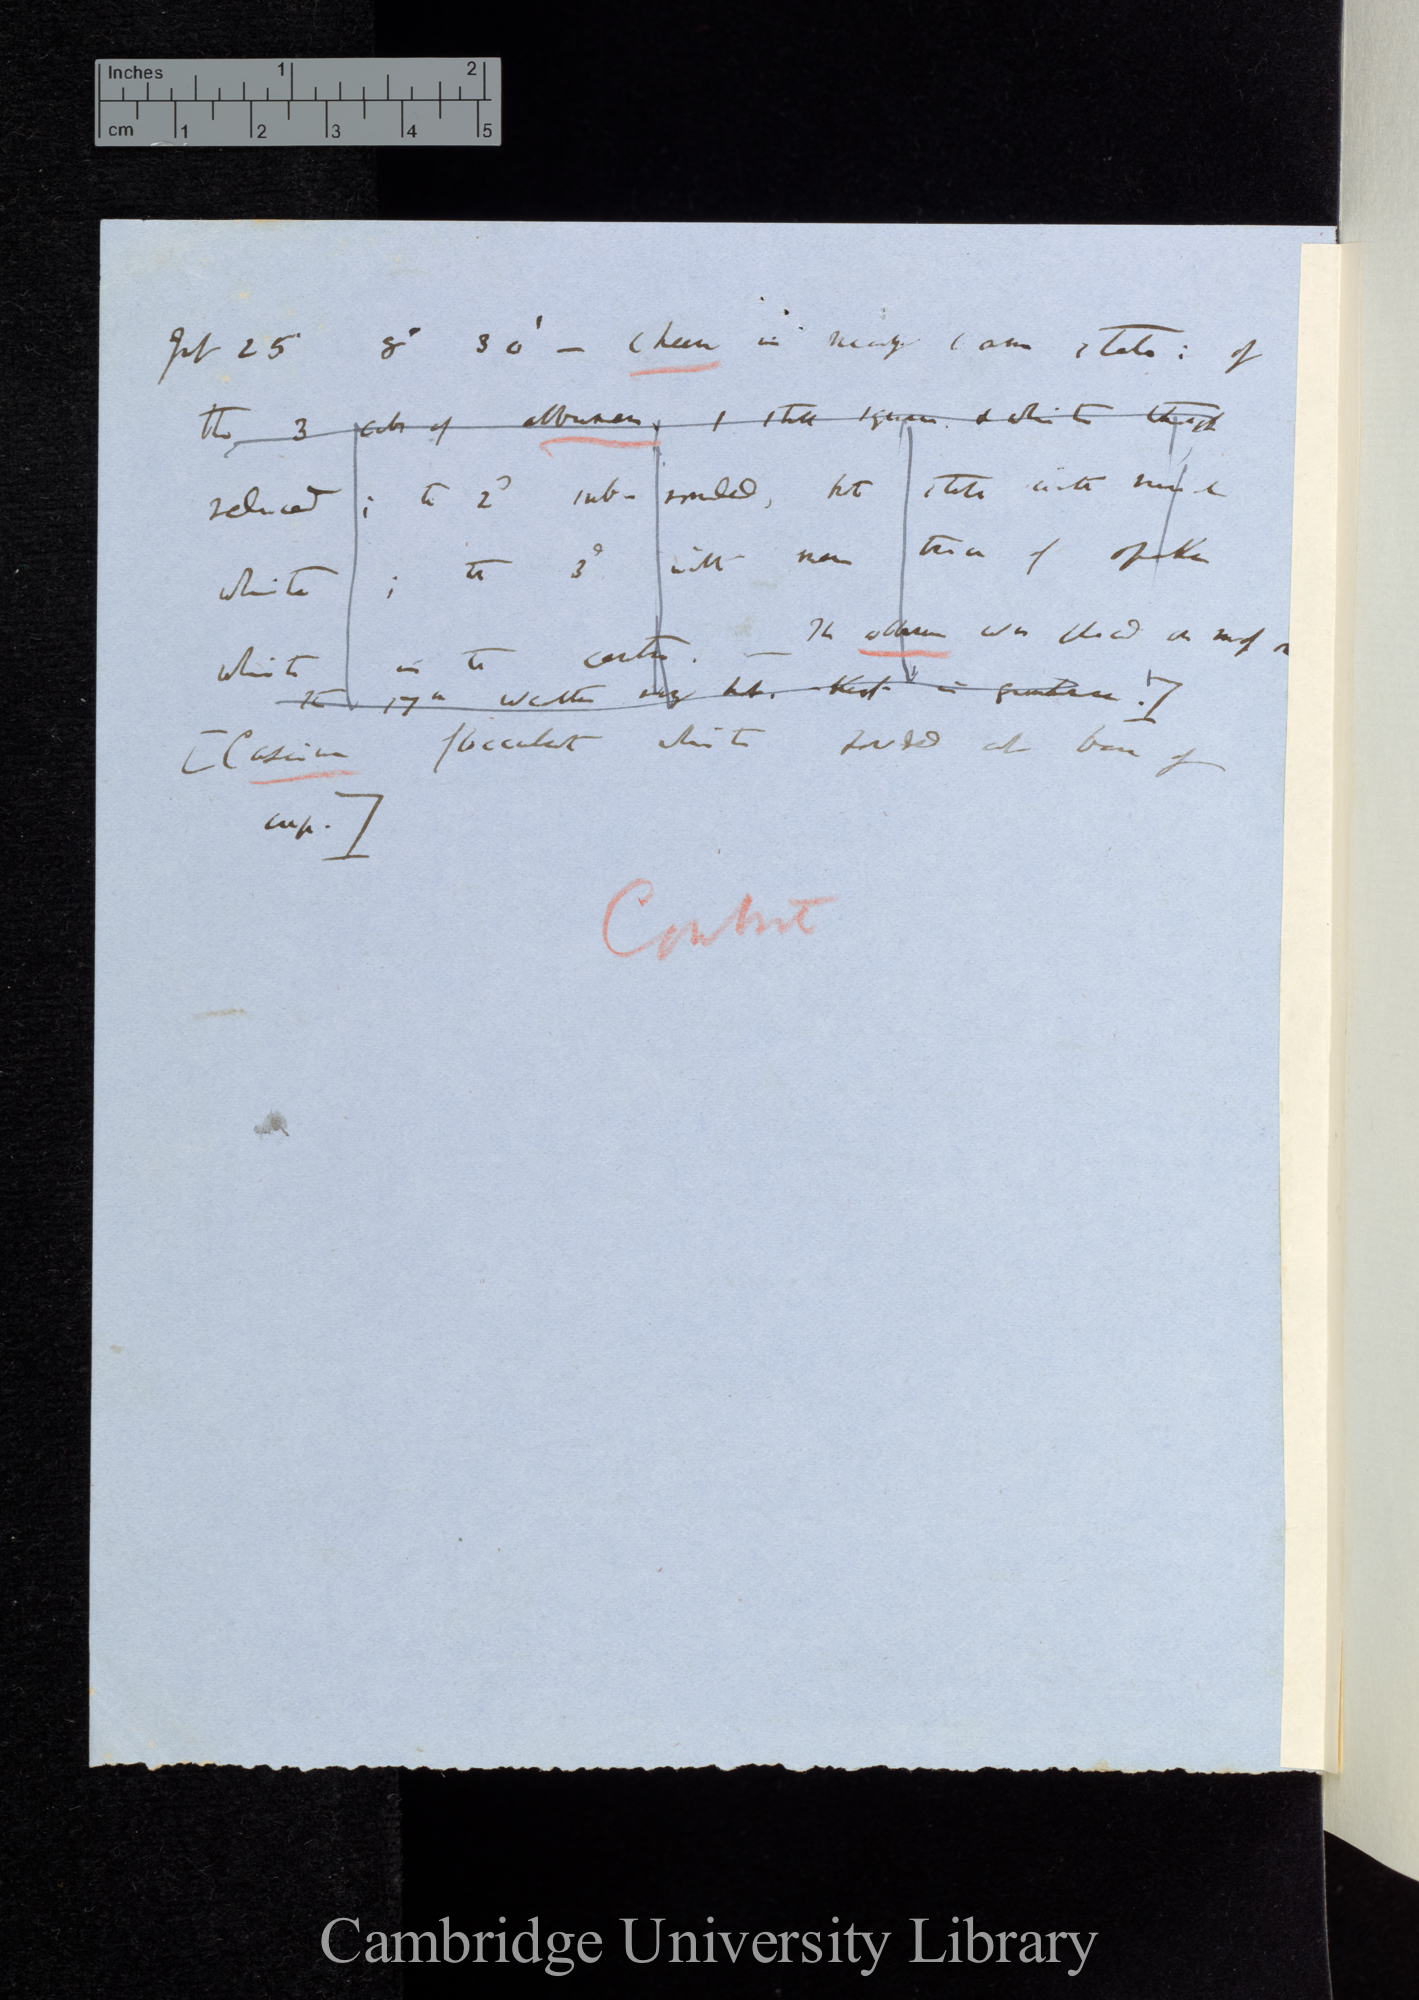 Inches 1 2
cm 1 2 3 4 5
Sept 25 8° 30' — Cheese in nearly same state: of
the 3 cubs of albumen, 1 still square & white though
reduced; the 2d sub-rounded, but still with much
white; the 3d with mere trace of opake
white in the centre. — The albumen was placed on
the 17th weather very hot. Kept in greenhouse!]
[Casein flocculent white at base of
cup.]
Cambridge University Library